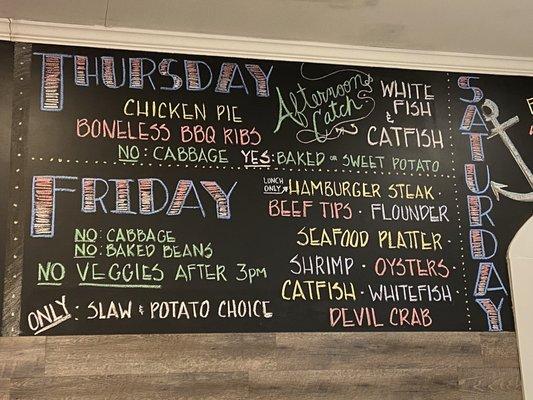 THURSDAY
CHICKEN PIE
BONELESS BBQ RIBS
NO: CABBAGE YES: BAKED OR SWEET POTATO
Afternoon
Catch
WHITE
FISH
&
CATFISH
FRIDAY
NO: CABBAGE
NO: BAKED BEANS
NO VEGGIES AFTER 3pm
ONLY: SLAW & POTATO CHOICE
LUNCH
ONLY
HAMBURGER STEAK
BEEF TIPS · FLOUNDER
SEAFOOD PLATTER ·
SHRIMP · OYSTERS
CATFISH · WHITEFISH
DEVIL CRAB
SATURDAY